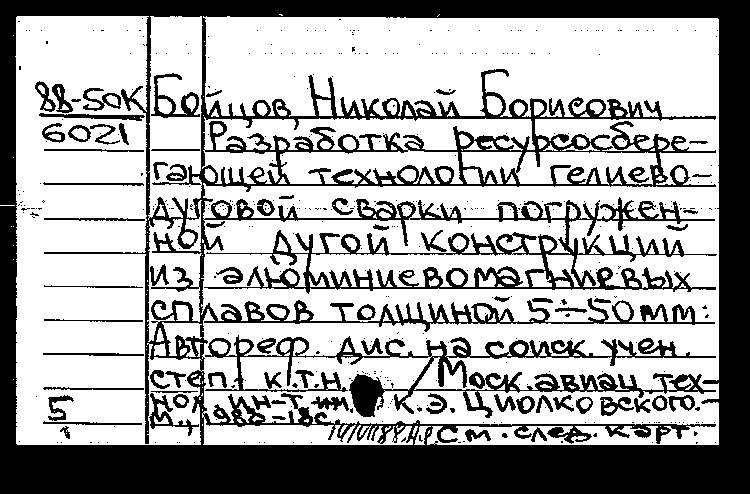 88-50К Бойцов, Николай Борисович
6021 Разработка ресурсосбере-
гающей технологии гелиево-
дуговой сварки погружен-
ной дугой конструкций
из алюминиевомагниевых
сплавов толщиной 5÷50мм:
Автореф. дис. на соиск. учен.
степ. к.т.н. / Моск. авиац. тех-
5 нол. ин-т им. К.Э. Циолковского.-
М., 1988-18с
См. след. карт.